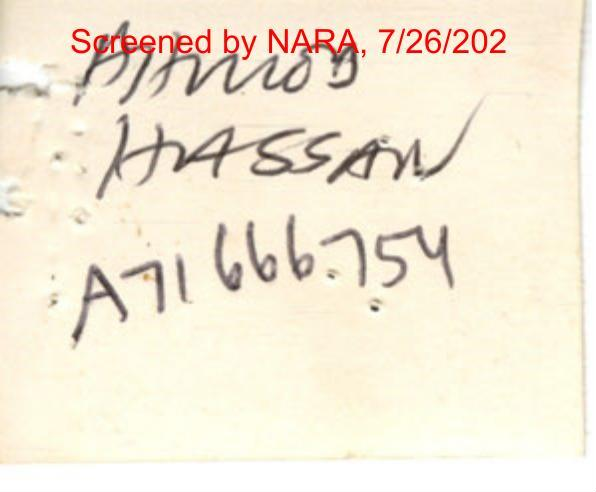 Screened by NARA, 7/26/202
HASSAN
A71 666.754